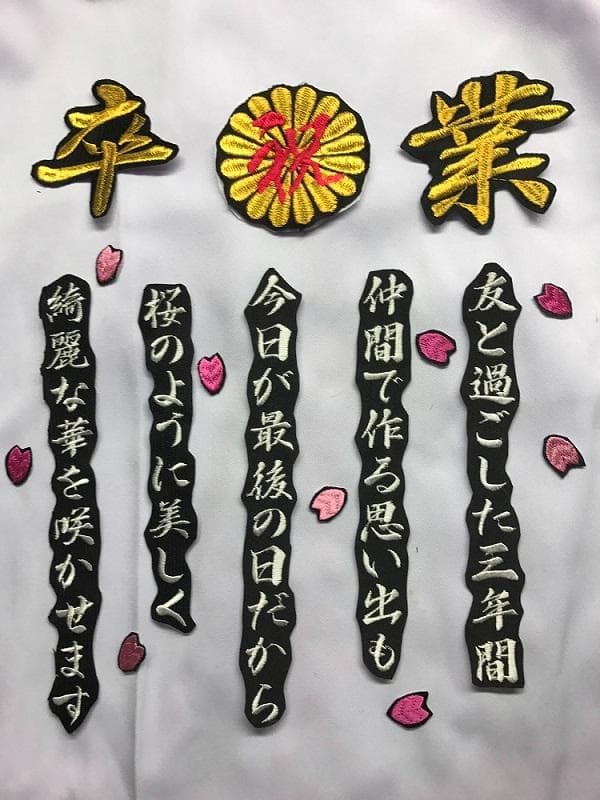 卒祝業
友と過ごした三年間
仲間で作る思い出も
今日が最後の日だから
桜のように美しく
綺麗な華を咲かせます